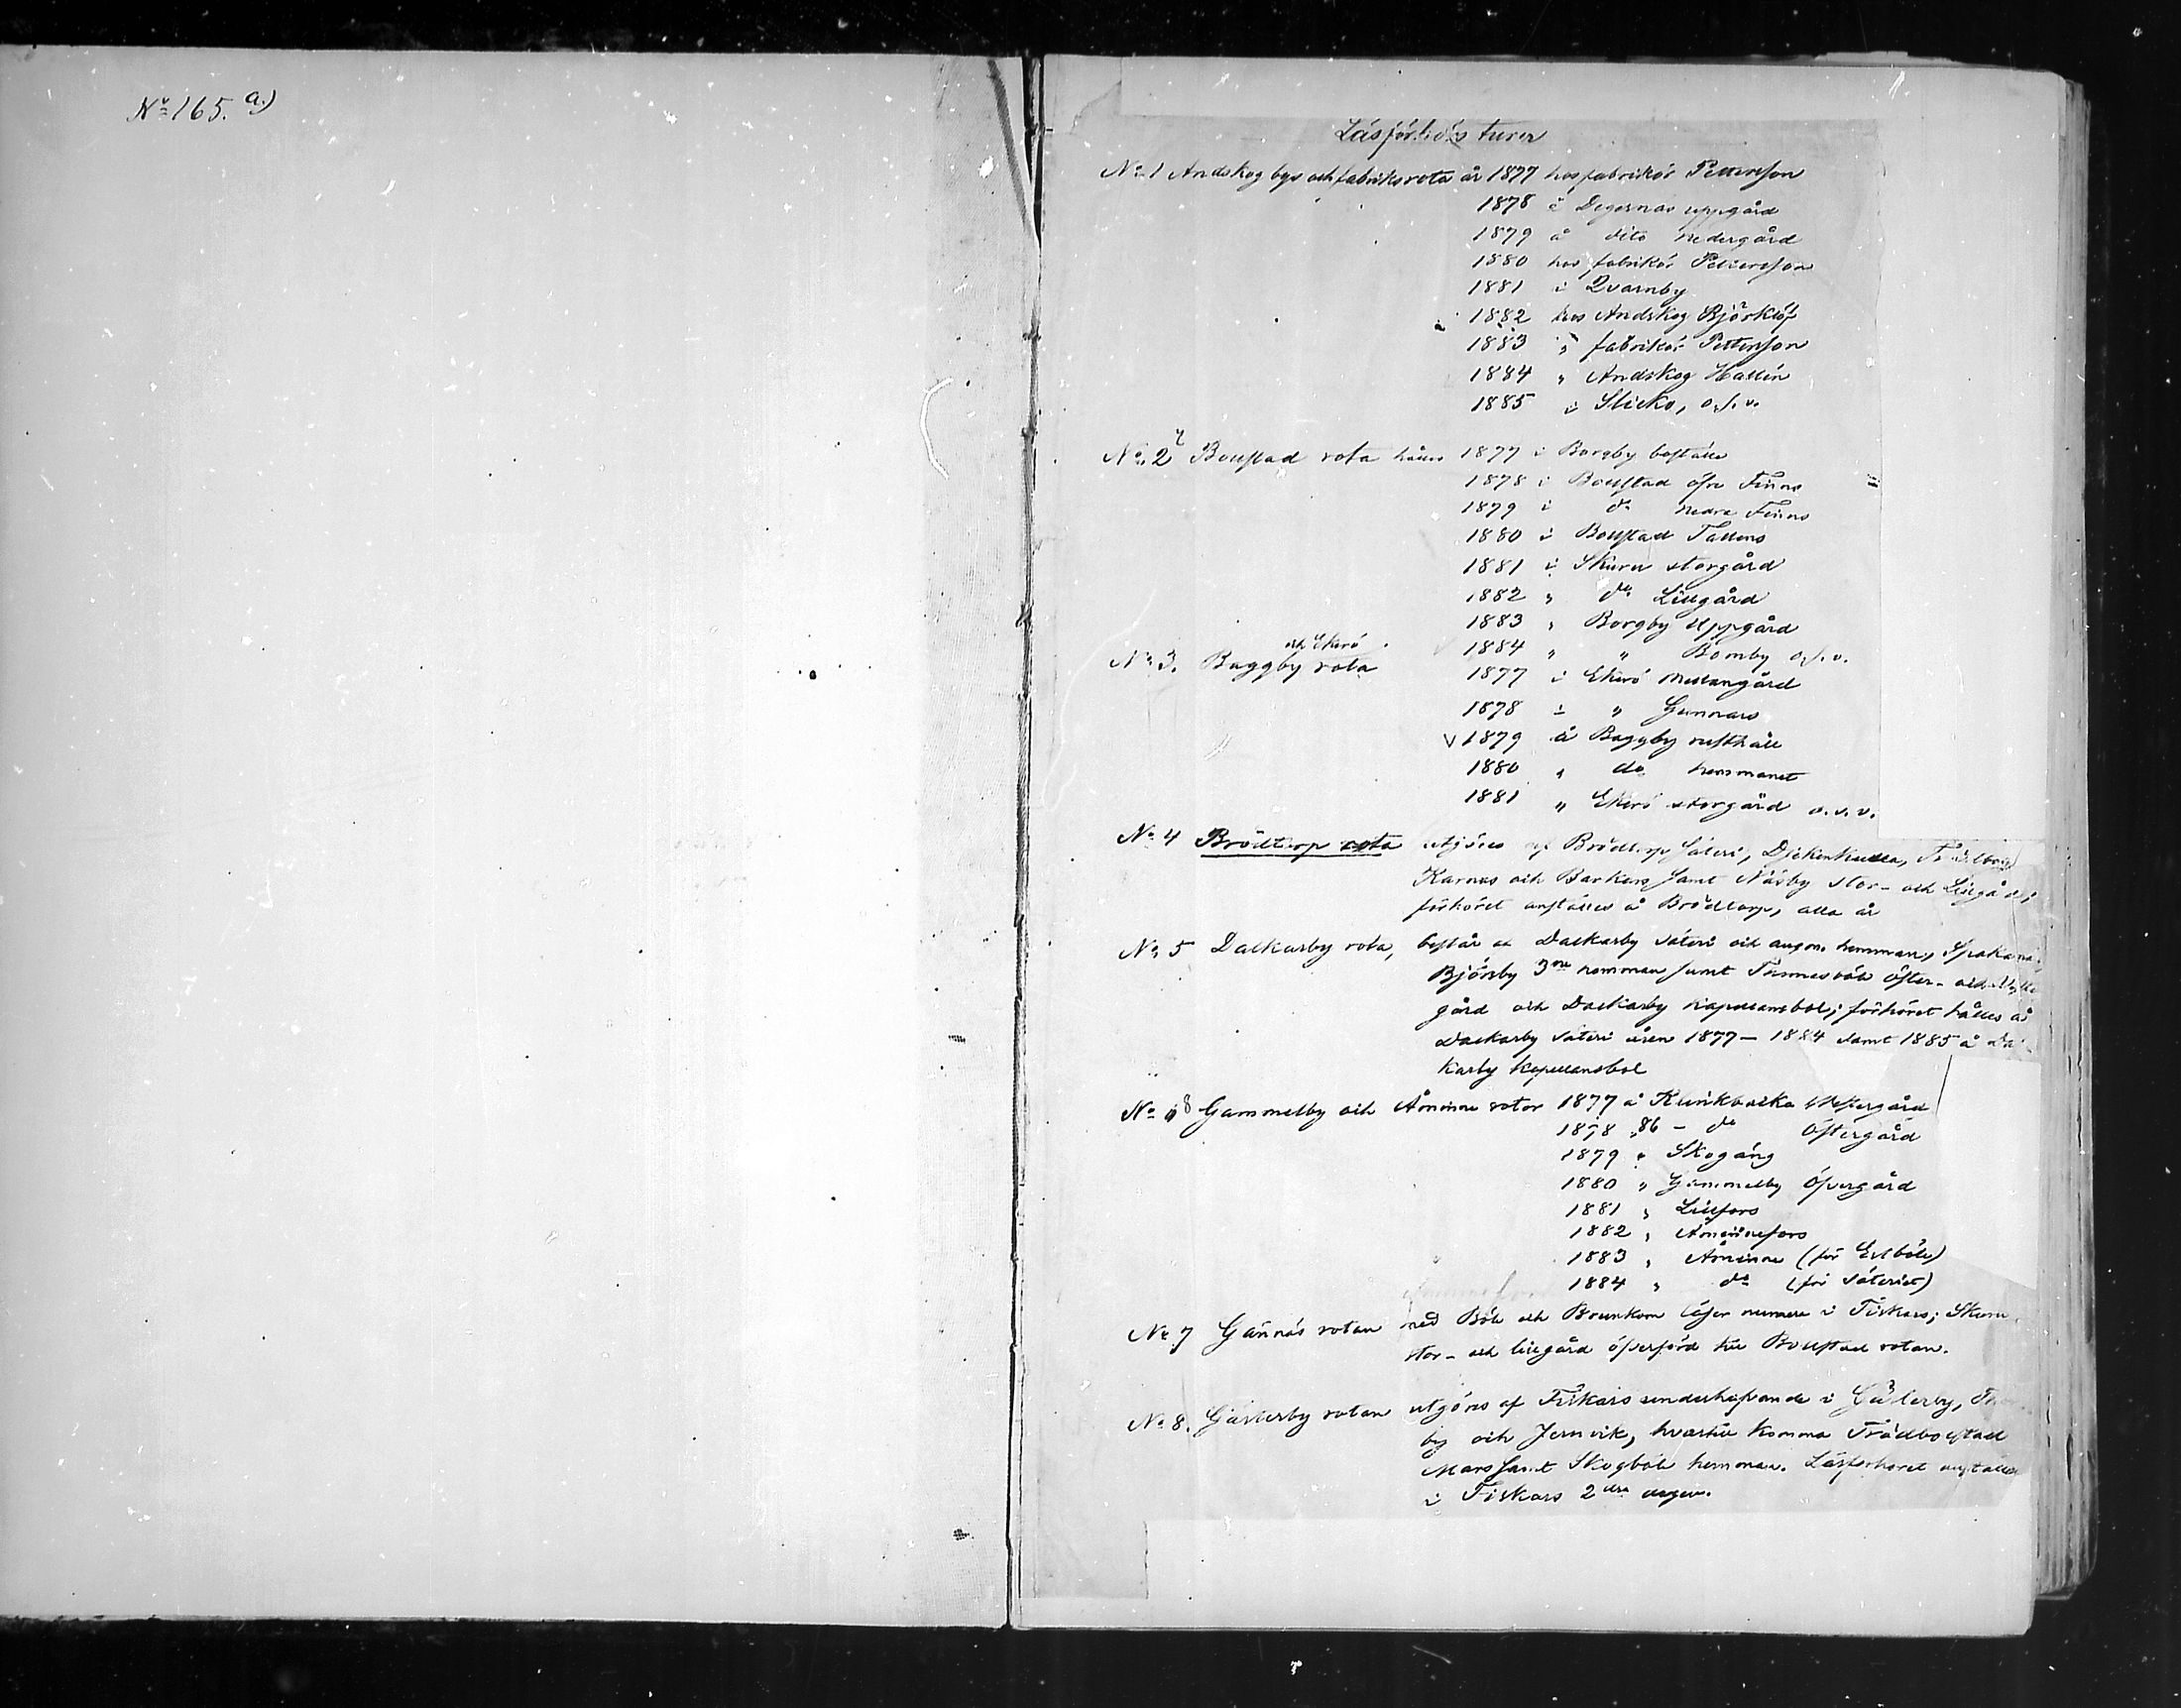 No 165. a.)
Läsförhörs turer
No 1 Andskog bys och fabriksrota år 1877 hos fabrikör Pettersson
1878 å Degernäs uppgård
1879 å dito nedergård
1880 hos fabrikör Pettersson
1881 i Qvarnby
1882 hos Andskog Björklöf
1883 " fabrikör Pettersson
1884 " Andskog Hallén
1885 i Slicko, o.s.v.
No 2 Bonstad rota hålles 1877 i Borgby boställe
1878 i Bonstad öfre Finns
1879 i do nedre Finns
1880 i Bonstad Tallens
1881 i Skuru storgård
1882 " do Lillgård
1883 " Borgby Uppgård
1884 " " Bomby o.s.v.
och Ekerö
No 3. Baggby rota
1877 i Ekerö mellangård
1878 i " Gunnars
V 1879 å Baggby rusthåll
1880 " do hemmanet
1881 " Ekerö storgård o.s.v.
No 4 Brödtorp rota utgöres af Brödtorp säteri, Djekenkulla,
Karnäs och Barkers samt Näsby stor- och Lillgård;
förhöret anställes å Brödtorp, alla år
No 5 Dalkarby rota, består af Dalkarby säteri och angr. hemman,
Björsby 3ne hemman samt Thomasböle öster- och
gård och Dalkarby kapellansbol; förhöret hålles å
Dalkarby säteri åren 1877 – 1884 samt 1885 å Dal-
karby kapellansbol
No 6 Gammelby och Åminne rotor 1877 å Klinkbacka Westergård
1878 " 86 – do Östergård
1879 " Skogäng
1880 " Gammelby Öfvergård
1881 " Lillfors
1882 " Åminnefors
1883 " Åminne (för Ersböle)
1884 " do (för säteriet)
No 7 Gännäs rotan med Böle och Brunkom läser numera i Fiskars; Skuru
stor- och lillgård öfverförd till Bonstad rotan.
No 8. Gästerby rotan utgöres af Fiskars underhafvande i Gästerby,
by och Jernvik, hvartill komma Trädbollstad
Mars samt Skogböle hemman. Läsförhöret anställes
i Fiskars 2dra dagen.